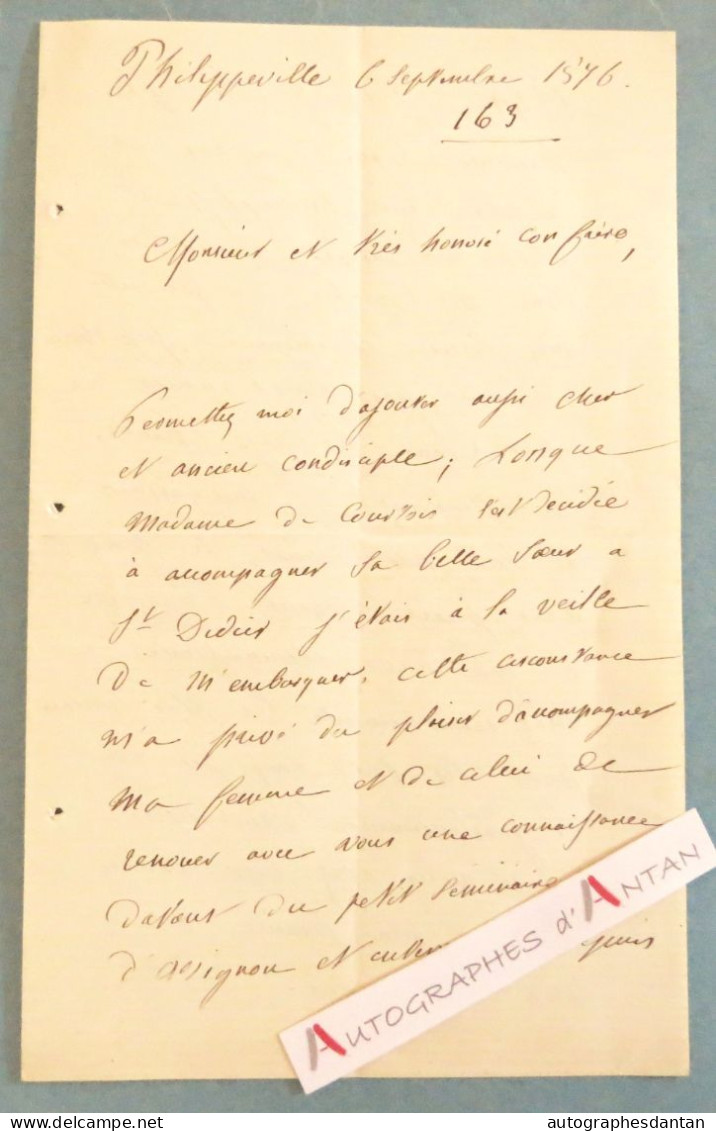 Philippeville 6 Septembre 1876.
163
Monsieur et très honoré confrère,
Permettez moi d'ajouter aussi cher
et ancien condisciple; Lorsque
Madame de Courtois s'est decidée
à accompagner sa belle sœur a
St Didier j'étais à la veille
De m'embarquer. cette circonstance
m'a privé du plaisir d'accompagner
ma femme et de celui de
renouer avec vous une connaissance
datant du petit Séminaire
d'avignon et puis
AUTOGRAPHES d'ANTAN
delcampe.net
autographesdantan